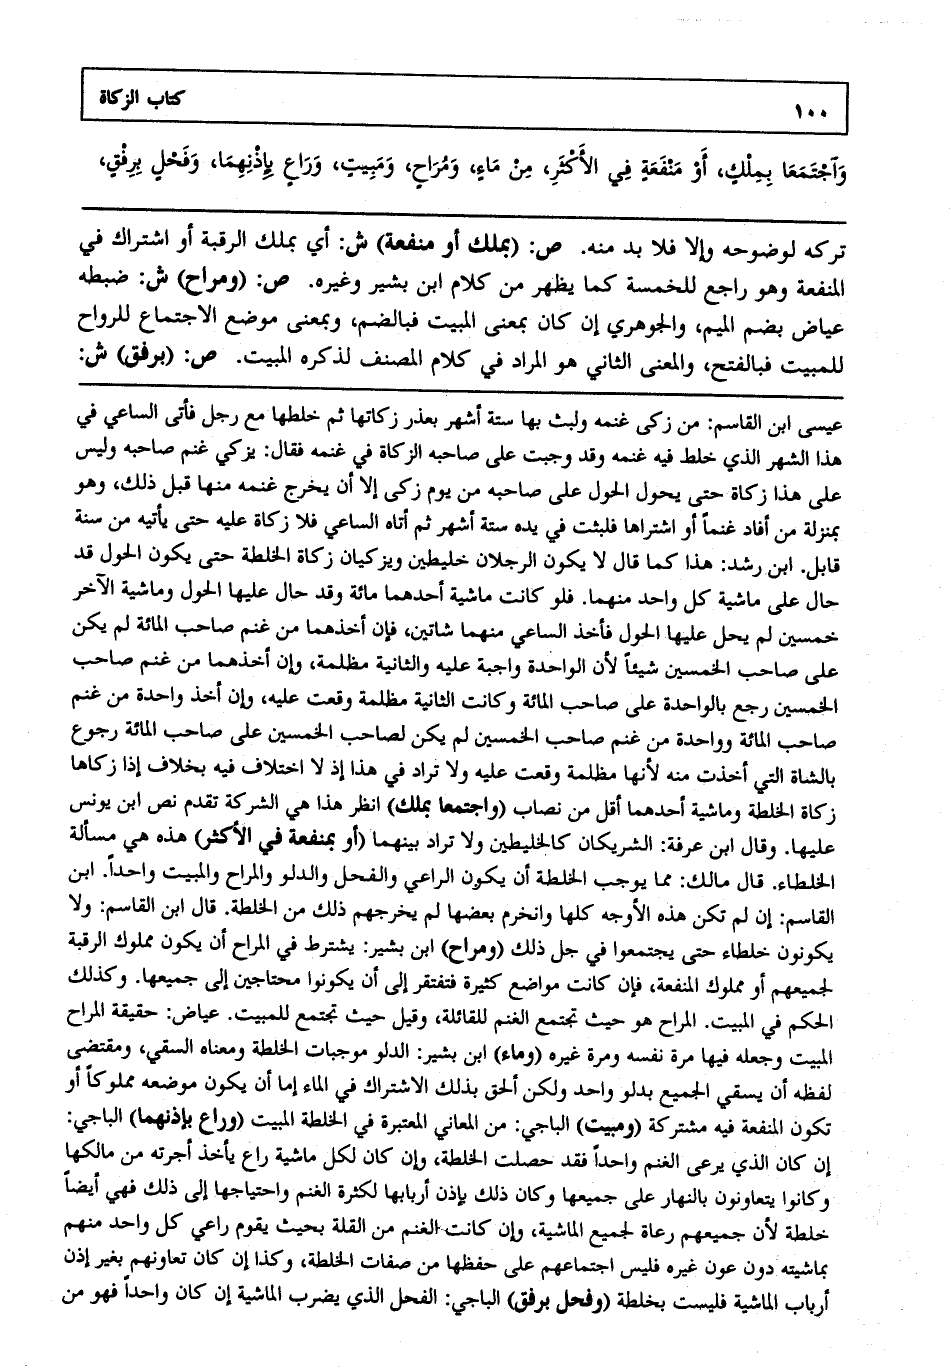 ١٠٠ كتاب الزكاة
وَٱجْتَمَعَا بِمِلْكٍ، أَوْ مَنْفَعَةٍ فِي الأَكْثَرِ، مِنْ مَاءٍ، وَمُرَاحٍ، وَمَبِيتٍ، وَرَاعٍ بِإِذْنِهِمَا، وَفَحْلٍ بِرِفْقٍ،
تركه لوضوحه وإلا فلا بد منه. ص: (بملك أو منفعة) ش: أي بملك الرقبة أو اشتراك في
المنفعة وهو راجع للخمسة كما يظهر من كلام ابن بشير وغيره. ص: (ومراح) ش: ضبطه
عياض بضم الميم، والجوهري إن كان بمعنى المبيت فبالضم، وبمعنى موضع الاجتماع للرواح
للمبيت فبالفتح، والمعنى الثاني هو المراد في كلام المصنف لذكره المبيت. ص: (برفق) ش:
عيسى ابن القاسم: من زكى غنمه ولبث بها ستة أشهر بعذر زكاتها ثم خلطها مع رجل فأتى الساعي في
هذا الشهر الذي خلط فيه غنمه وقد وجبت على صاحبه الزكاة في غنمه فقال: يزكي غنم صاحبه وليس
على هذا زكاة حتى يحول الحول على صاحبه من يوم زكى إلا أن يخرج غنمه منها قبل ذلك، وهو
بمنزلة من أفاد غنماً أو اشتراها فلبثت في يده ستة أشهر ثم أتاه الساعي فلا زكاة عليه حتى يأتيه من سنة
قابل. ابن رشد: هذا كما قال لا يكون الرجلان خليطين ويزكيان زكاة الخلطة حتى يكون الحول قد
حال على ماشية كل واحد منهما. فلو كانت ماشية أحدهما مائة وقد حال عليها الحول وماشية الآخر
خمسين لم يحل عليها الحول فأخذ الساعي منهما شاتين، فإن أخذهما من غنم صاحب المائة لم يكن
على صاحب الخمسين شيئاً لأن الواحدة واجبة عليه والثانية مظلمة، وإن أخذهما من غنم صاحب
الخمسين رجع بالواحدة على صاحب المائة وكانت الثانية مظلمة وقعت عليه، وإن أخذ واحدة من غنم
صاحب المائة وواحدة من غنم صاحب الخمسين لم يكن لصاحب الخمسين على صاحب المائة رجوع
بالشاة التي أخذت منه لأنها مظلمة وقعت عليه ولا تراد في هذا إذ لا اختلاف فيه بخلاف إذا زكاها
زكاة الخلطة وماشية أحدهما أقل من نصاب (واجتمعا بملك) انظر هذا هي الشركة تقدم نص ابن يونس
عليها. وقال ابن عرفة: الشريكان كالخليطين ولا تراد بينهما (أو بمنفعة في الأكثر) هذه هي مسألة
الخلطاء. قال مالك: مما يوجب الخلطة أن يكون الراعي والفحل والدلو والمراح والمبيت واحداً. ابن
القاسم: إن لم تكن هذه الأوجه كلها وانخرم بعضها لم يخرجهم ذلك من الخلطة. قال ابن القاسم: ولا
يكونون خلطاء حتى يجتمعوا في جل ذلك (ومراح) ابن بشير: يشترط في المراح أن يكون مملوك الرقبة
لجميعهم أو مملوك المنفعة، فإن كانت مواضع كثيرة فتفتقر إلى أن يكونوا محتاجين إلى جميعها. وكذلك
الحكم في المبيت. المراح هو حيث تجتمع الغنم للقائلة، وقيل حيث تجتمع للمبيت. عياض: حقيقة المراح
المبيت وجعله فيها مرة نفسه ومرة غيره (وماء) ابن بشير: الدلو موجبات الخلطة ومعناه السقي، ومقتضى
لفظه أن يسقي الجميع بدلو واحد ولكن ألحق بذلك الاشتراك في الماء إما أن يكون موضعه مملوكاً أو
تكون المنفعة فيه مشتركة (ومبيت) الباجي: من المعاني المعتبرة في الخلطة المبيت (وراع بإذنهما) الباجي:
إن كان الذي يرعى الغنم واحداً فقد حصلت الخلطة، وإن كان لكل ماشية راع يأخذ أجرته من مالكها
وكانوا يتعاونون بالنهار على جميعها وكان ذلك بإذن أربابها لكثرة الغنم واحتياجها إلى ذلك فهي أيضاً
خلطة لأن جميعهم رعاة لجميع الماشية، وإن كانت الغنم من القلة بحيث يقوم راعي كل واحد منهم
بماشيته دون عون غيره فليس اجتماعهم على حفظها من صفات الخلطة، وكذا إن كان تعاونهم بغير إذن
أرباب الماشية فليست بخلطة (وفحل برفق) الباجي: الفحل الذي يضرب الماشية إن كان واحداً فهو من